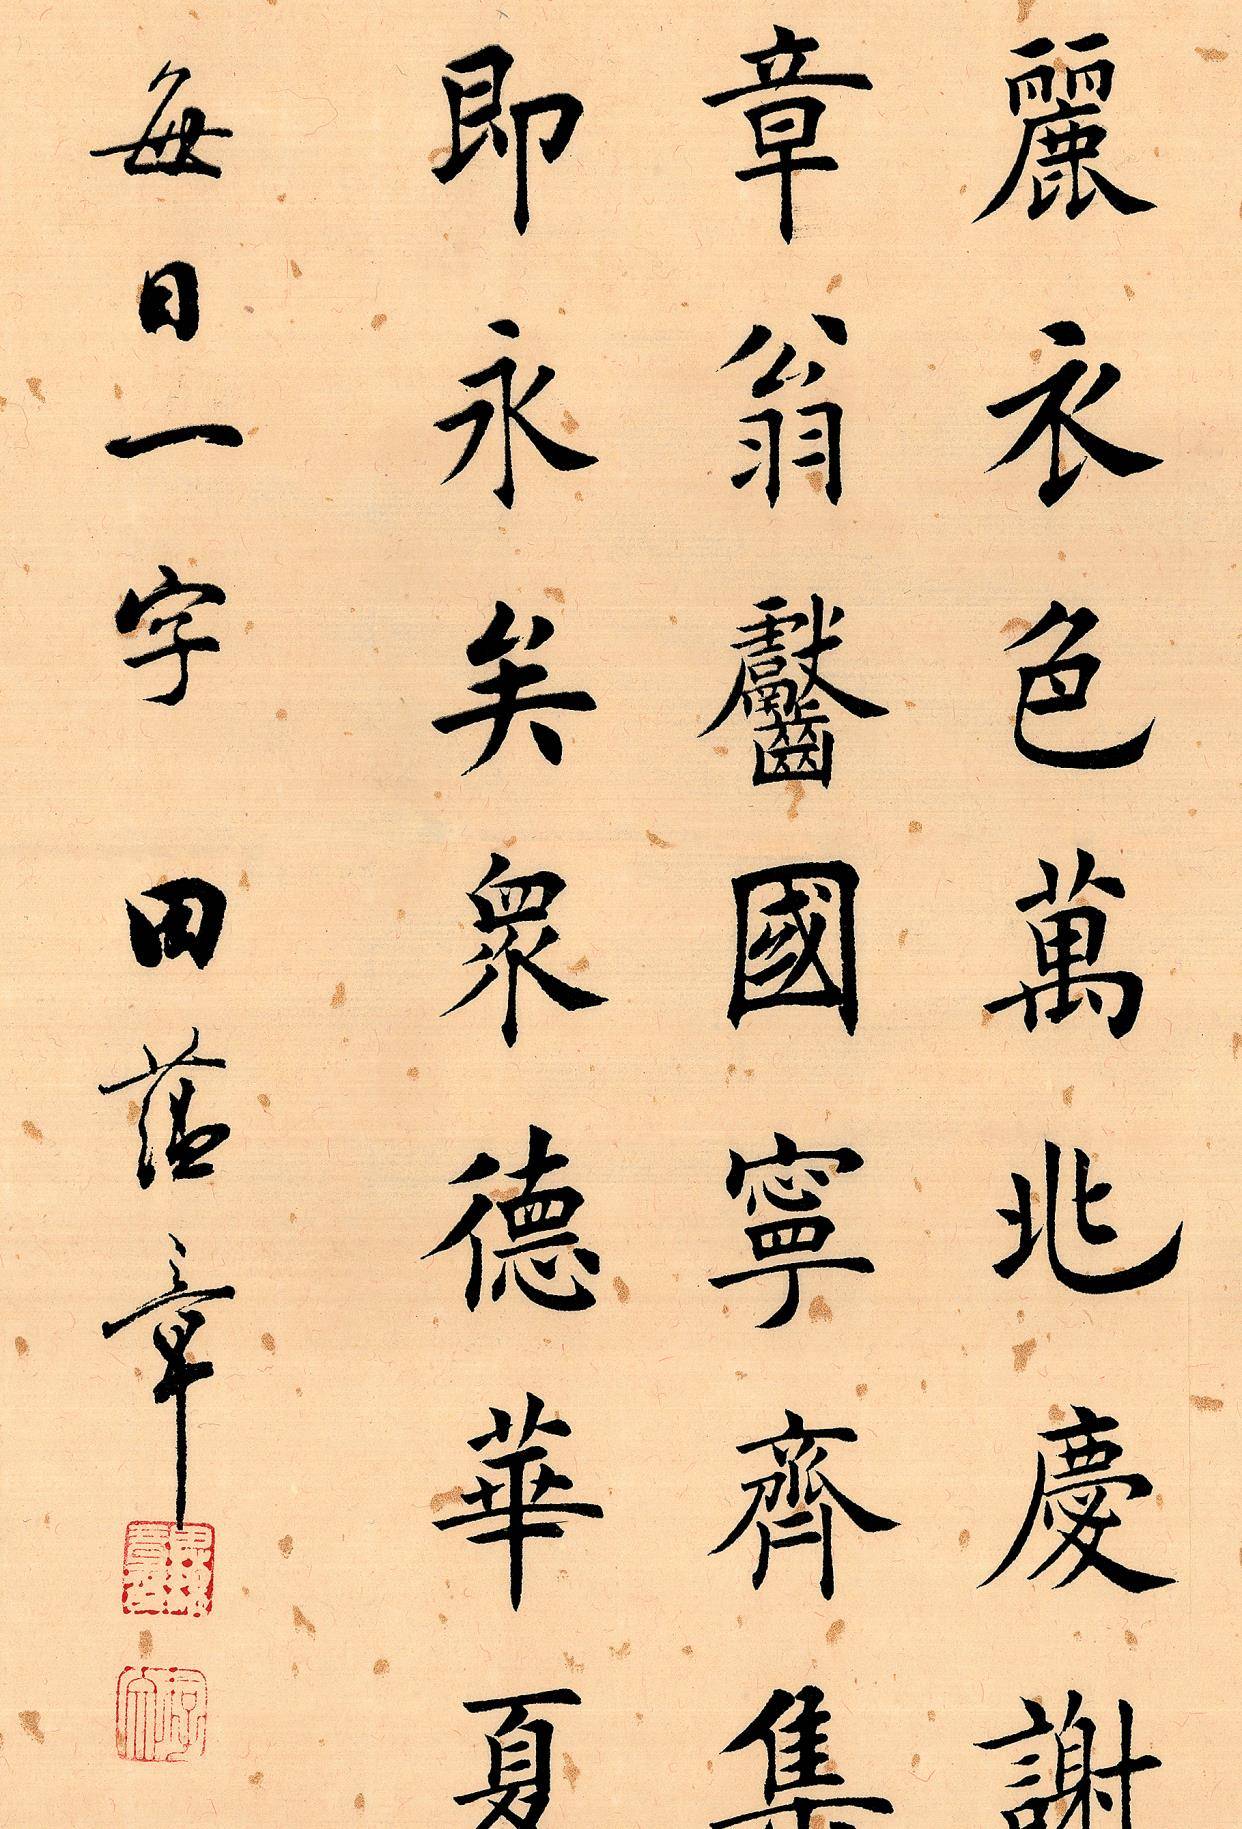 麗衣色萬兆慶謝
章翁齾國寧齊集
即永矣眾德華夏
每日一字 田蘊章